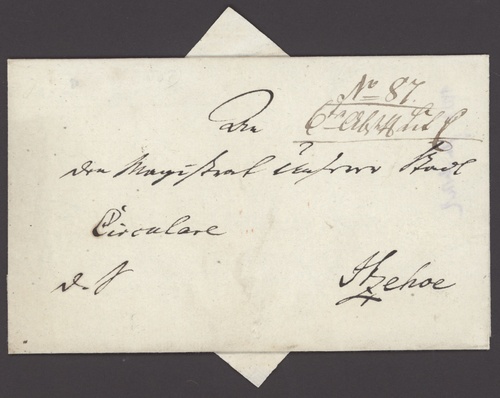 No 87.
An
den Magistrat Unserer Stadt
Circulare
Itzehoe